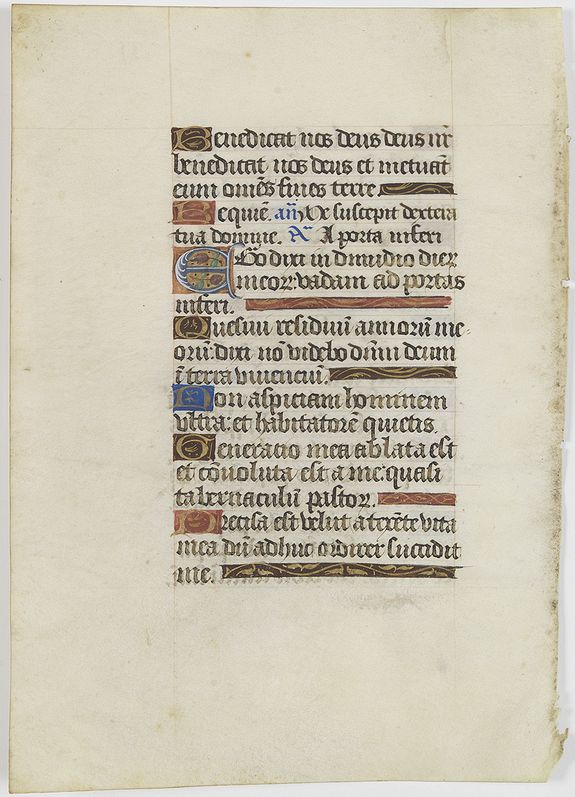 Benedicat nos deus deus nr̄
benedicat nos deus et metuāt
eum om̄es fines terre
Requiē. an̄ Me suscepit dextera
tua domine. A̅ A porta inferi
EGo dixi in dimidio dierꝝ
meoꝝ: vadam ad portas
inferi.
Quesiui residuū annorū me-
orū: dixi nō videbo dn̄m deum
ī terra viuenciū.
Non aspiciam hominem
vltra: et habitatorē quietis.
Generacio mea ablata est
et cōuoluta est a me: quasi
tabernaculū pastor.
Precisa est velut a texēte vita
mea dū adhuc ordirer succidit
me.